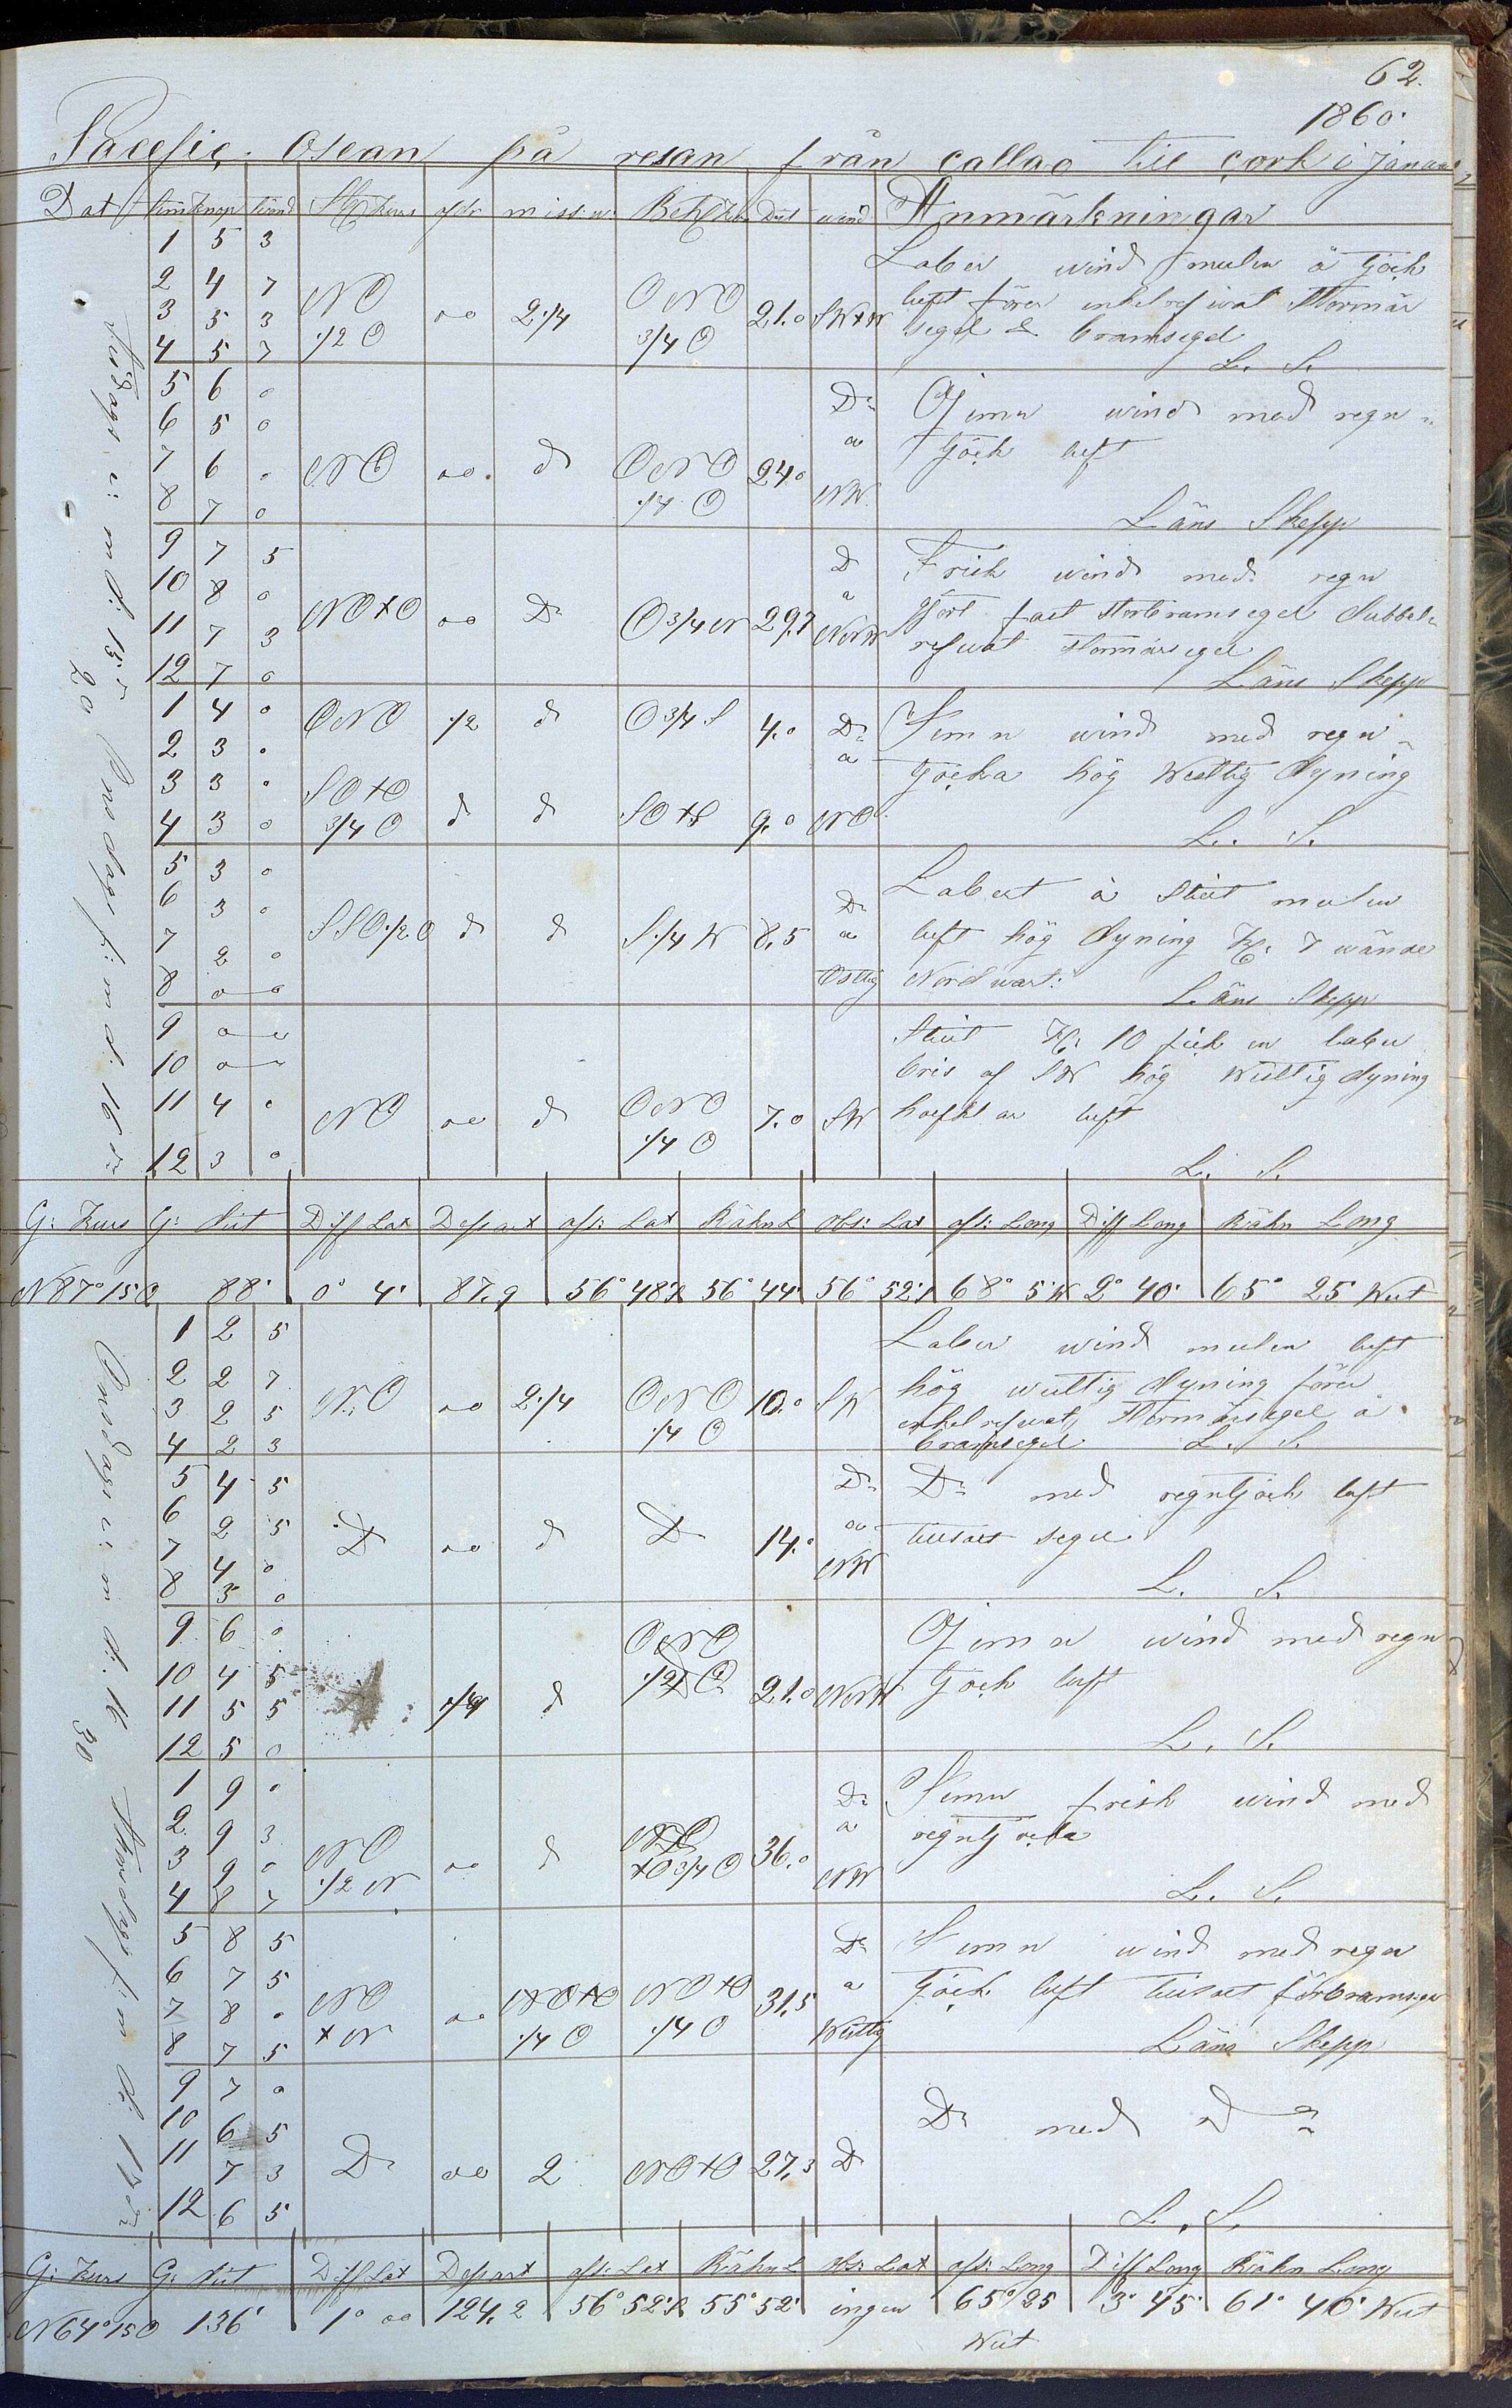 62.
1860.
Pacefic. Osean på resan från callao till cork i Januari
Dat tim knop kurs afdr miss: Dist wind Anmärkningar
Tisdags e: m d: 15
20 Onsdags f: m d: 16
1 5 3
2 4 7
3 5 3
4 5 7
NO 1/2 O oo 2 1/4 ONO 3/4 O 21.0 SW+W
Laber wind mulen å tjock
luft förer enkel refwat Stormär
segel & bramsegel
L. S.
5 6 0
6 5 0
7 6 0
8 7 0
NO oo d ONO 1/4 O 24.0 Do a NW
Gjemn wind med regn
tjock luft
Läns Skepp
9 7 5
10 8 0
11 7 3
12 7 0
NO+O oo Do O 3/4 N 29.7 D a NNW
Frisk wind med regn
gjort fast Storbramsegel dubbel
refwat Stormärsegel
Läns Skepp
1 4 0
2 3 0
3 3 0
4 3 0
ONO 1/2 d O 3/4 S 4.0 Do a
SO+O 3/4 O d d SO+S 9.0 NO
Jemn wind med regn
tjocka hög Westlig dyning
L. S.
5 3 0
6 3 0
7 2 0
8 0 0
SSO 1/2 O d d S 1/4 W 8.5 Do a Ostlig
Labert å stilt mulen
luft hög dyning Kl: 7 wände
Nord wart:
Läns Skepp
9 0 0
10 0 0
11 4 0
12 3 0
NO oo d ONO 1/4 O 7.0 SW
Stilt Kl: 10 fick en laber
bris af SW hög Westlig dyning
halfklar luft
L. S.
G: Kurs G: dist Diff Lat Depart afs: Lat Räkn L obs: Lat afs: Long Diff Long Räkn Long
N 87° 15 O 88' 0° 4' 87.9 56° 48 S 56° 44' 56° 52' S 68° 5 W 2° 40' 65° 25 West
Onsdags e: m d: 16
30 Thorsdags f: m d: 17
1 2 5
2 2 7
3 2 5
4 2 3
NO oo 2 1/4 ONO 1/4 O 10.0 SW
Laber wind mulen luft
hög westlig dyning förer
enkel refwat Stormärsegel å
bramsegel L. S.
5 4 5
6 2 5
7 4 0
8 3 0
D oo d D 14.0 Do a NW
Do med regntjock luft
tillsatt segel
L. S.
9 6 0
10 4 5
11 5 5
12 5 0
1/4 d ONO 1/2 O 21.0 NNW
Gjemn wind med regn
tjock luft
L. S.
1 9 0
2 9 3
3 9 0
4 8 7
NO 1/2 N oo d NO +O 3/4 O 36.0 Do a NW
Jemn frisk wind med
regntjocka
L. S.
5 8 5
6 7 5
7 8 0
8 7 5
NO +N oo NO+O 1/4 O NO+O 1/4 O 31.5 Do a Westlig
Jemn wind med regn
tjock luft tillsatt förbramsegel
Läns Skepp
9 7 0
10 6 5
11 7 3
12 6 5
Do oo 2 NO+O 27.3 D
Do med do
L. S.
G: Kurs G: dist Diff Lat Depart afs: Lat Räkn L obs: Lat afs: Long Diff Long Räkn Long
N 64° 15 O 136' 1° oo 124.2 56° 52' S 55° 52' ingen 65° 25 West 3° 45' 61° 40' West